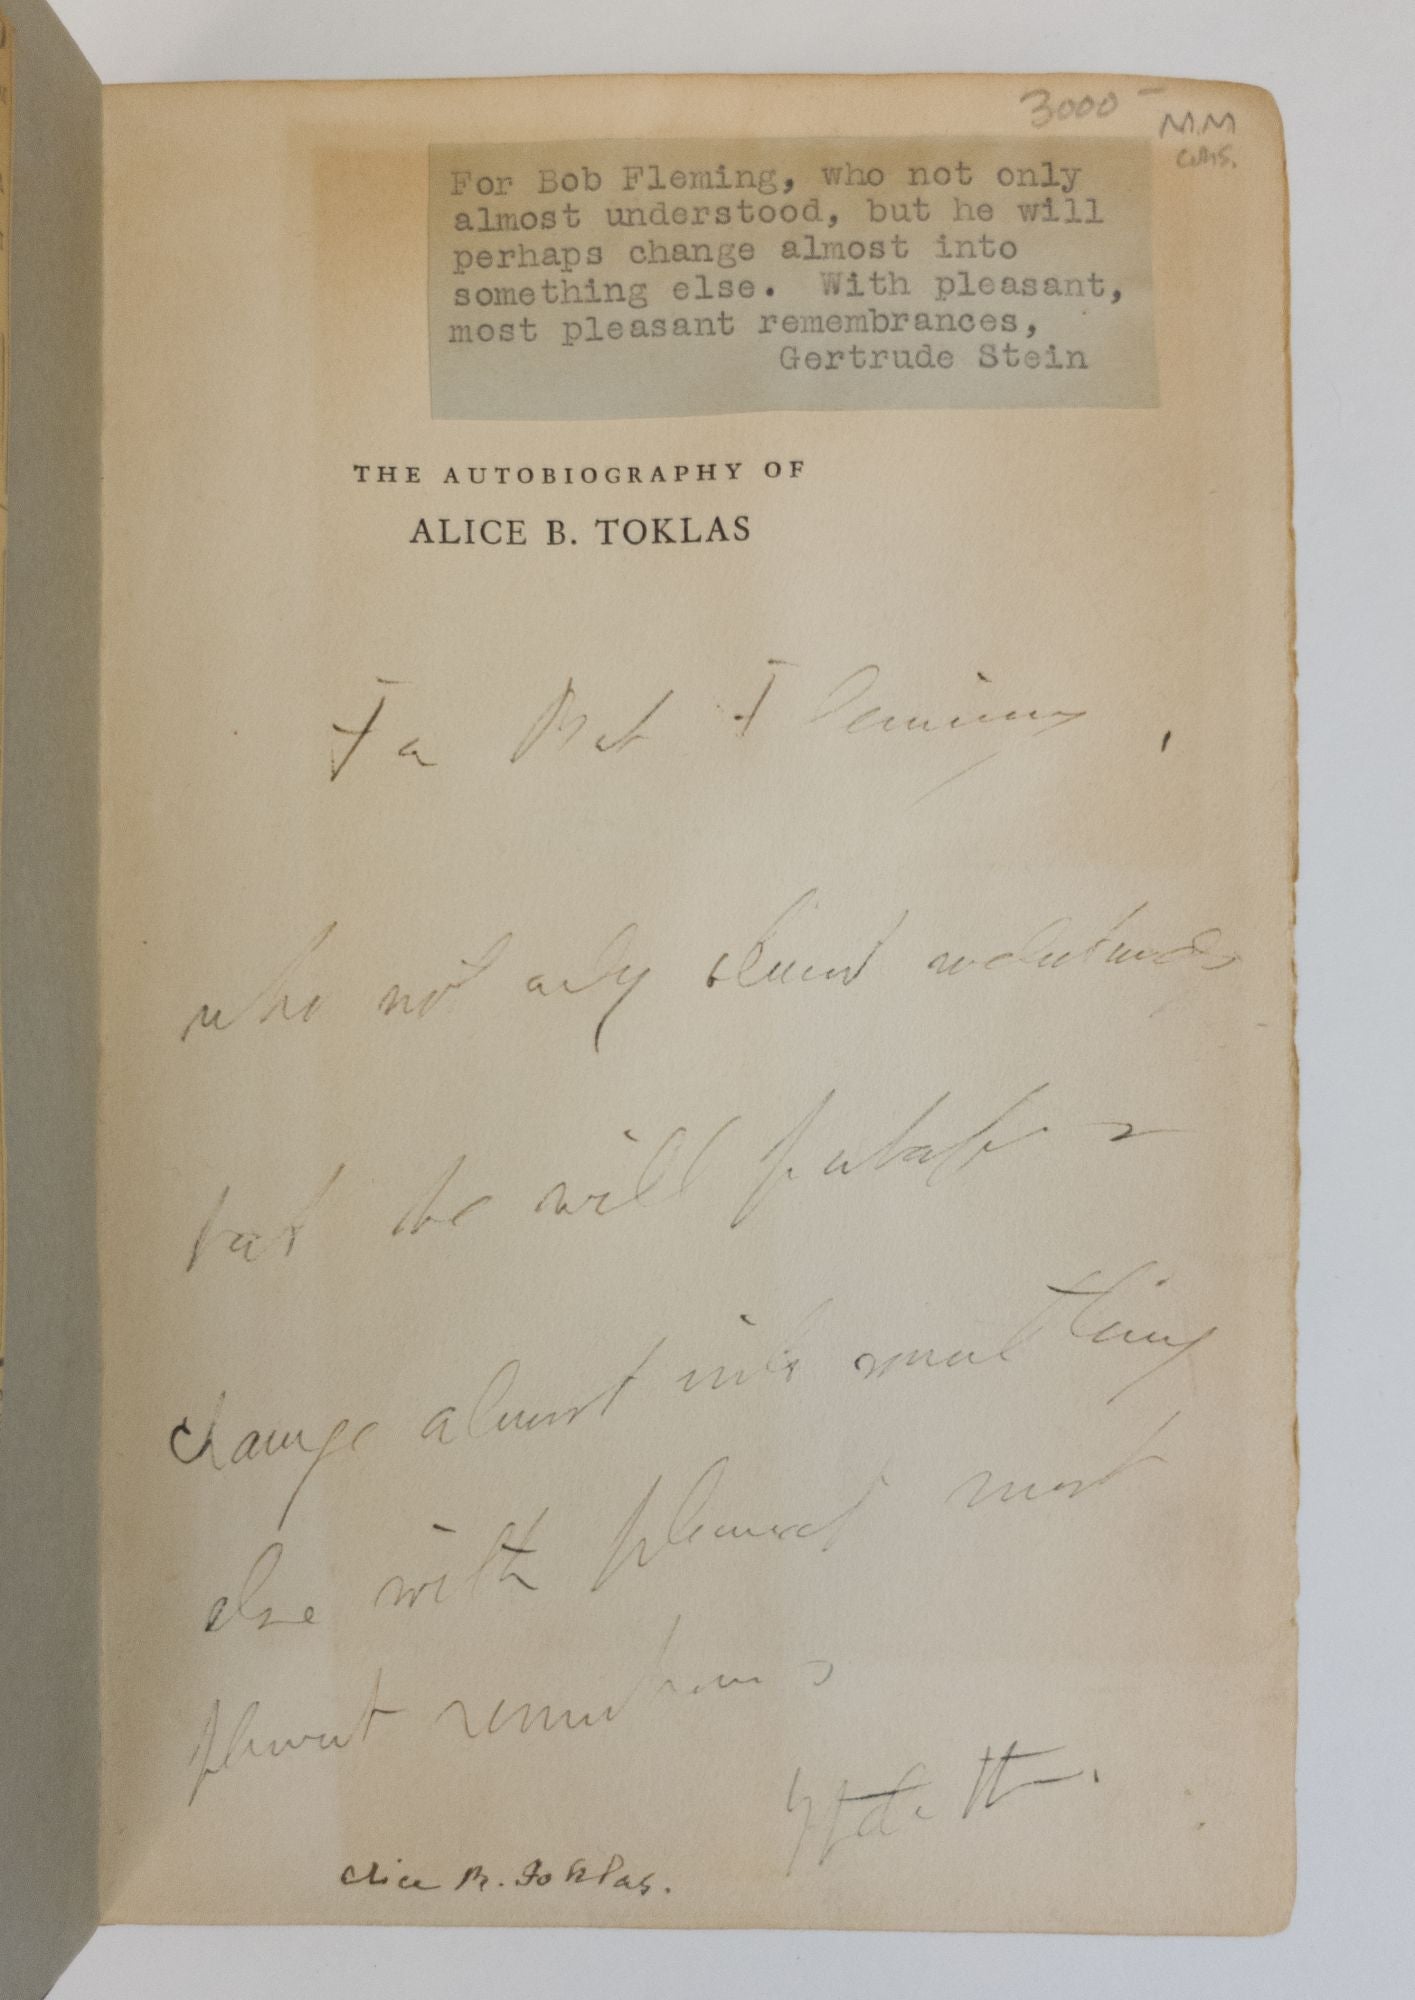 3000-
MM
For Bob Fleming, who not only
almost understood, but he will
perhaps change almost into
something else. With pleasant,
most pleasant remembrances,
Gertrude Stein
THE AUTOBIOGRAPHY OF
ALICE B. TOKLAS
For Bob Fleming,
who not only almost understands
but he will perhaps
change almost into something
else with pleasant most
pleasant remembrances
Gtrde Stn.
Alice B. Toklas.